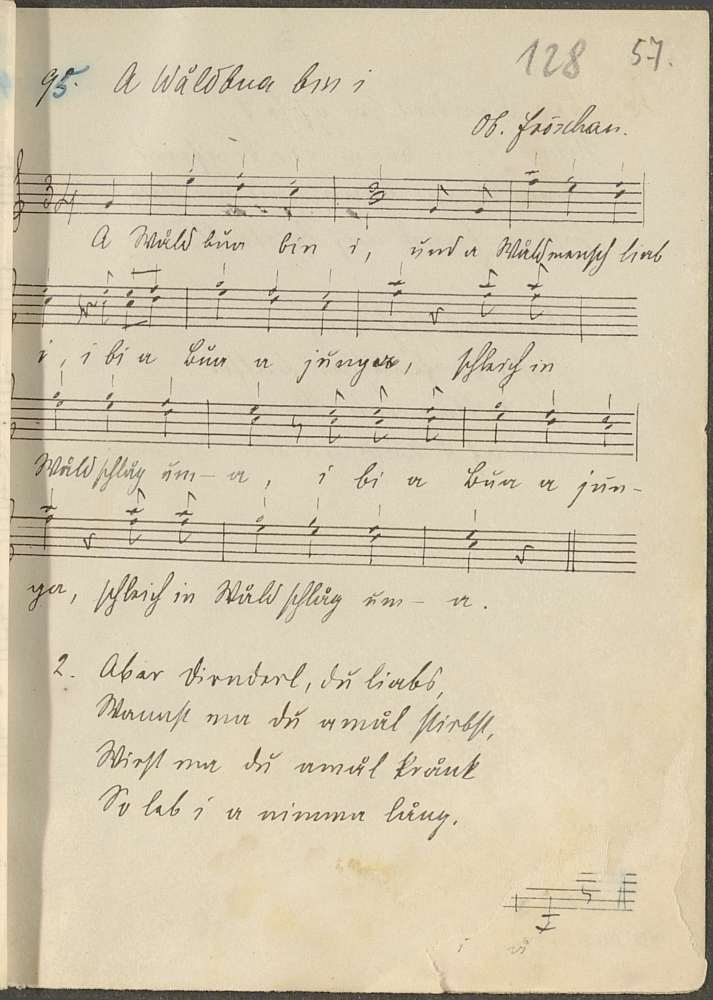 128 57.
95. A Wåldbua bin i
Ob. Fröschau.
3/4
A Wåldbua bin i, und a Wåldmensch liab
i, i bi a Bua a junger, schleich in
Wåldschlåg um-a, i bi a Bua a jun-
ga, schleich in Wåldschlåg um-a.
2. Aber Dirnderl, du liabs,
Wannst ma du amål stirbst,
Wirst ma du amål krånk
So leb i a nimma lång.